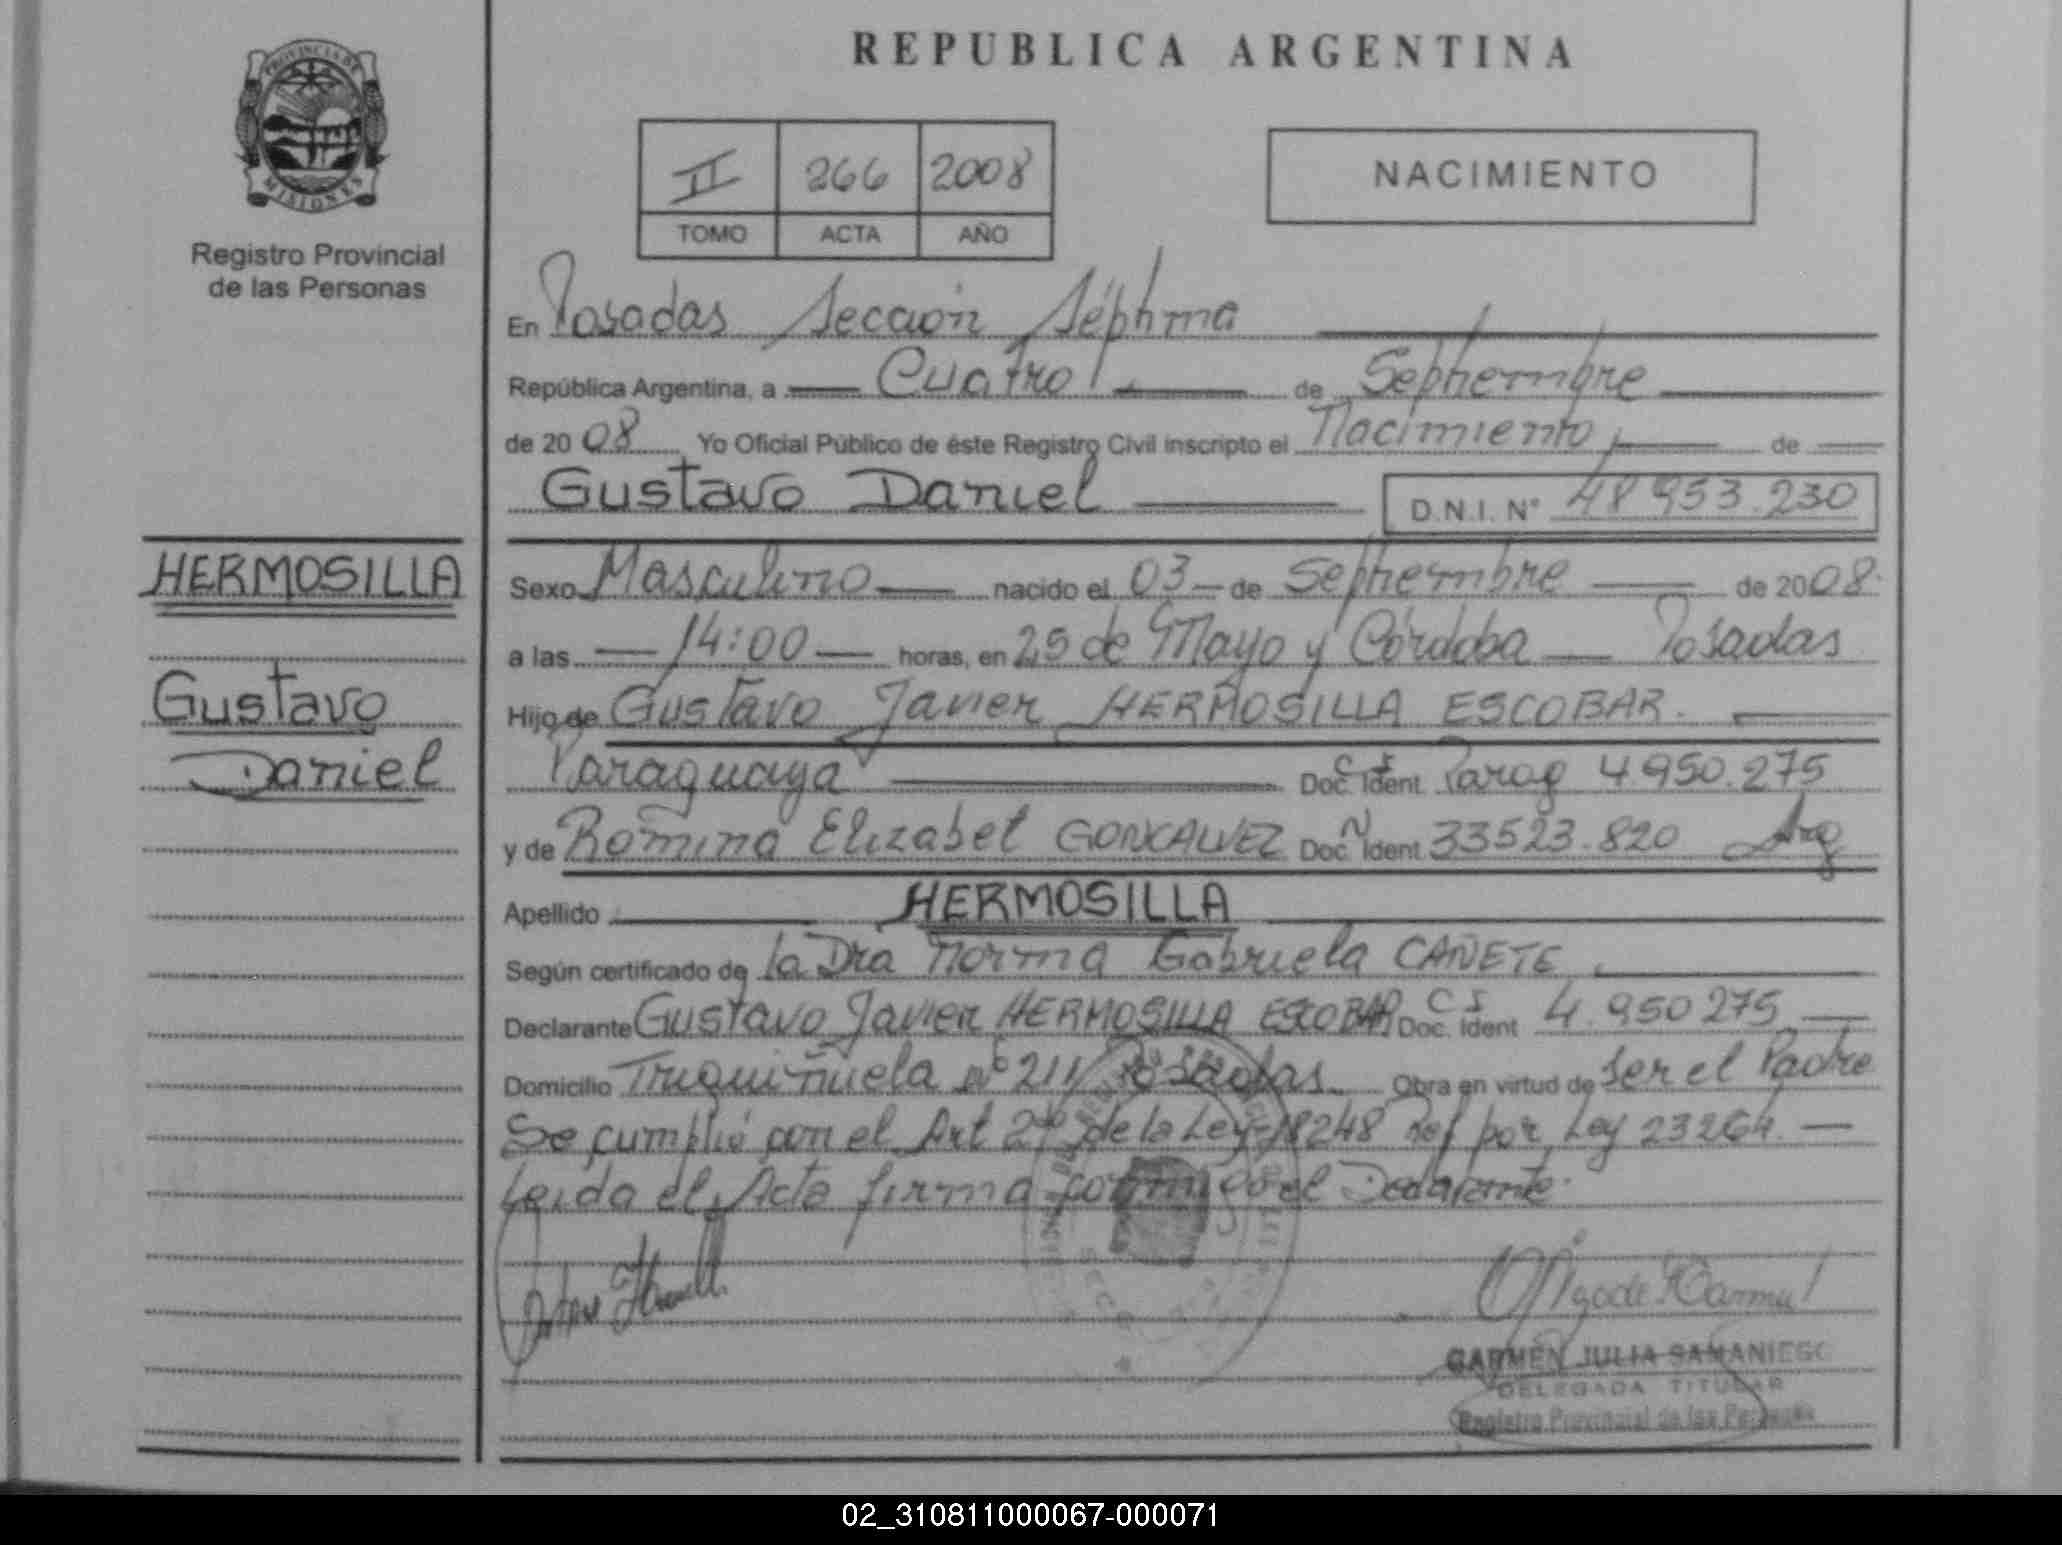 PROVINCIA DE
MISIONES
Registro Provincial
de las Personas
HERMOSILLA
Gustavo
Daniel
REPUBLICA ARGENTINA
II 266 2008
TOMO ACTA AÑO
NACIMIENTO
En Posadas Sección Séptima
República Argentina, a Cuatro de Septiembre
de 2008 Yo Oficial Público de éste Registro Civil inscripto el Nacimiento, de
Gustavo Daniel D.N.I. N° 48.953.230
Sexo Masculino nacido el 03 de Septiembre de 2008.
a las 14:00 horas, en 25 de Mayo y Córdoba Posadas
Hijo de Gustavo Javier HERMOSILLA ESCOBAR.
Paraguaya C I Doc. Ident. Parag 4.950.275
y de Romina Elizabet GONCALVEZ Doc. Ident. 33523.820 Arg
Apellido HERMOSILLA
Según certificado de la Dra Norma Gabriela CAÑETE
Declarante Gustavo Javier HERMOSILLA ESCOBAR C I Doc. Ident 4.950275
Domicilio Triquiñuela n° 211 Posadas Obra en virtud de ser el Padre
Se cumplió con el Art 2° de la Ley 18248 Ref por Ley 23264.
Leida el Acta firma conmigo el Declarante.
CARMEN JULIA SAMANIEGO
DELEGADA TITULAR
Registro Provincial de las Personas
02_310811000067-000071